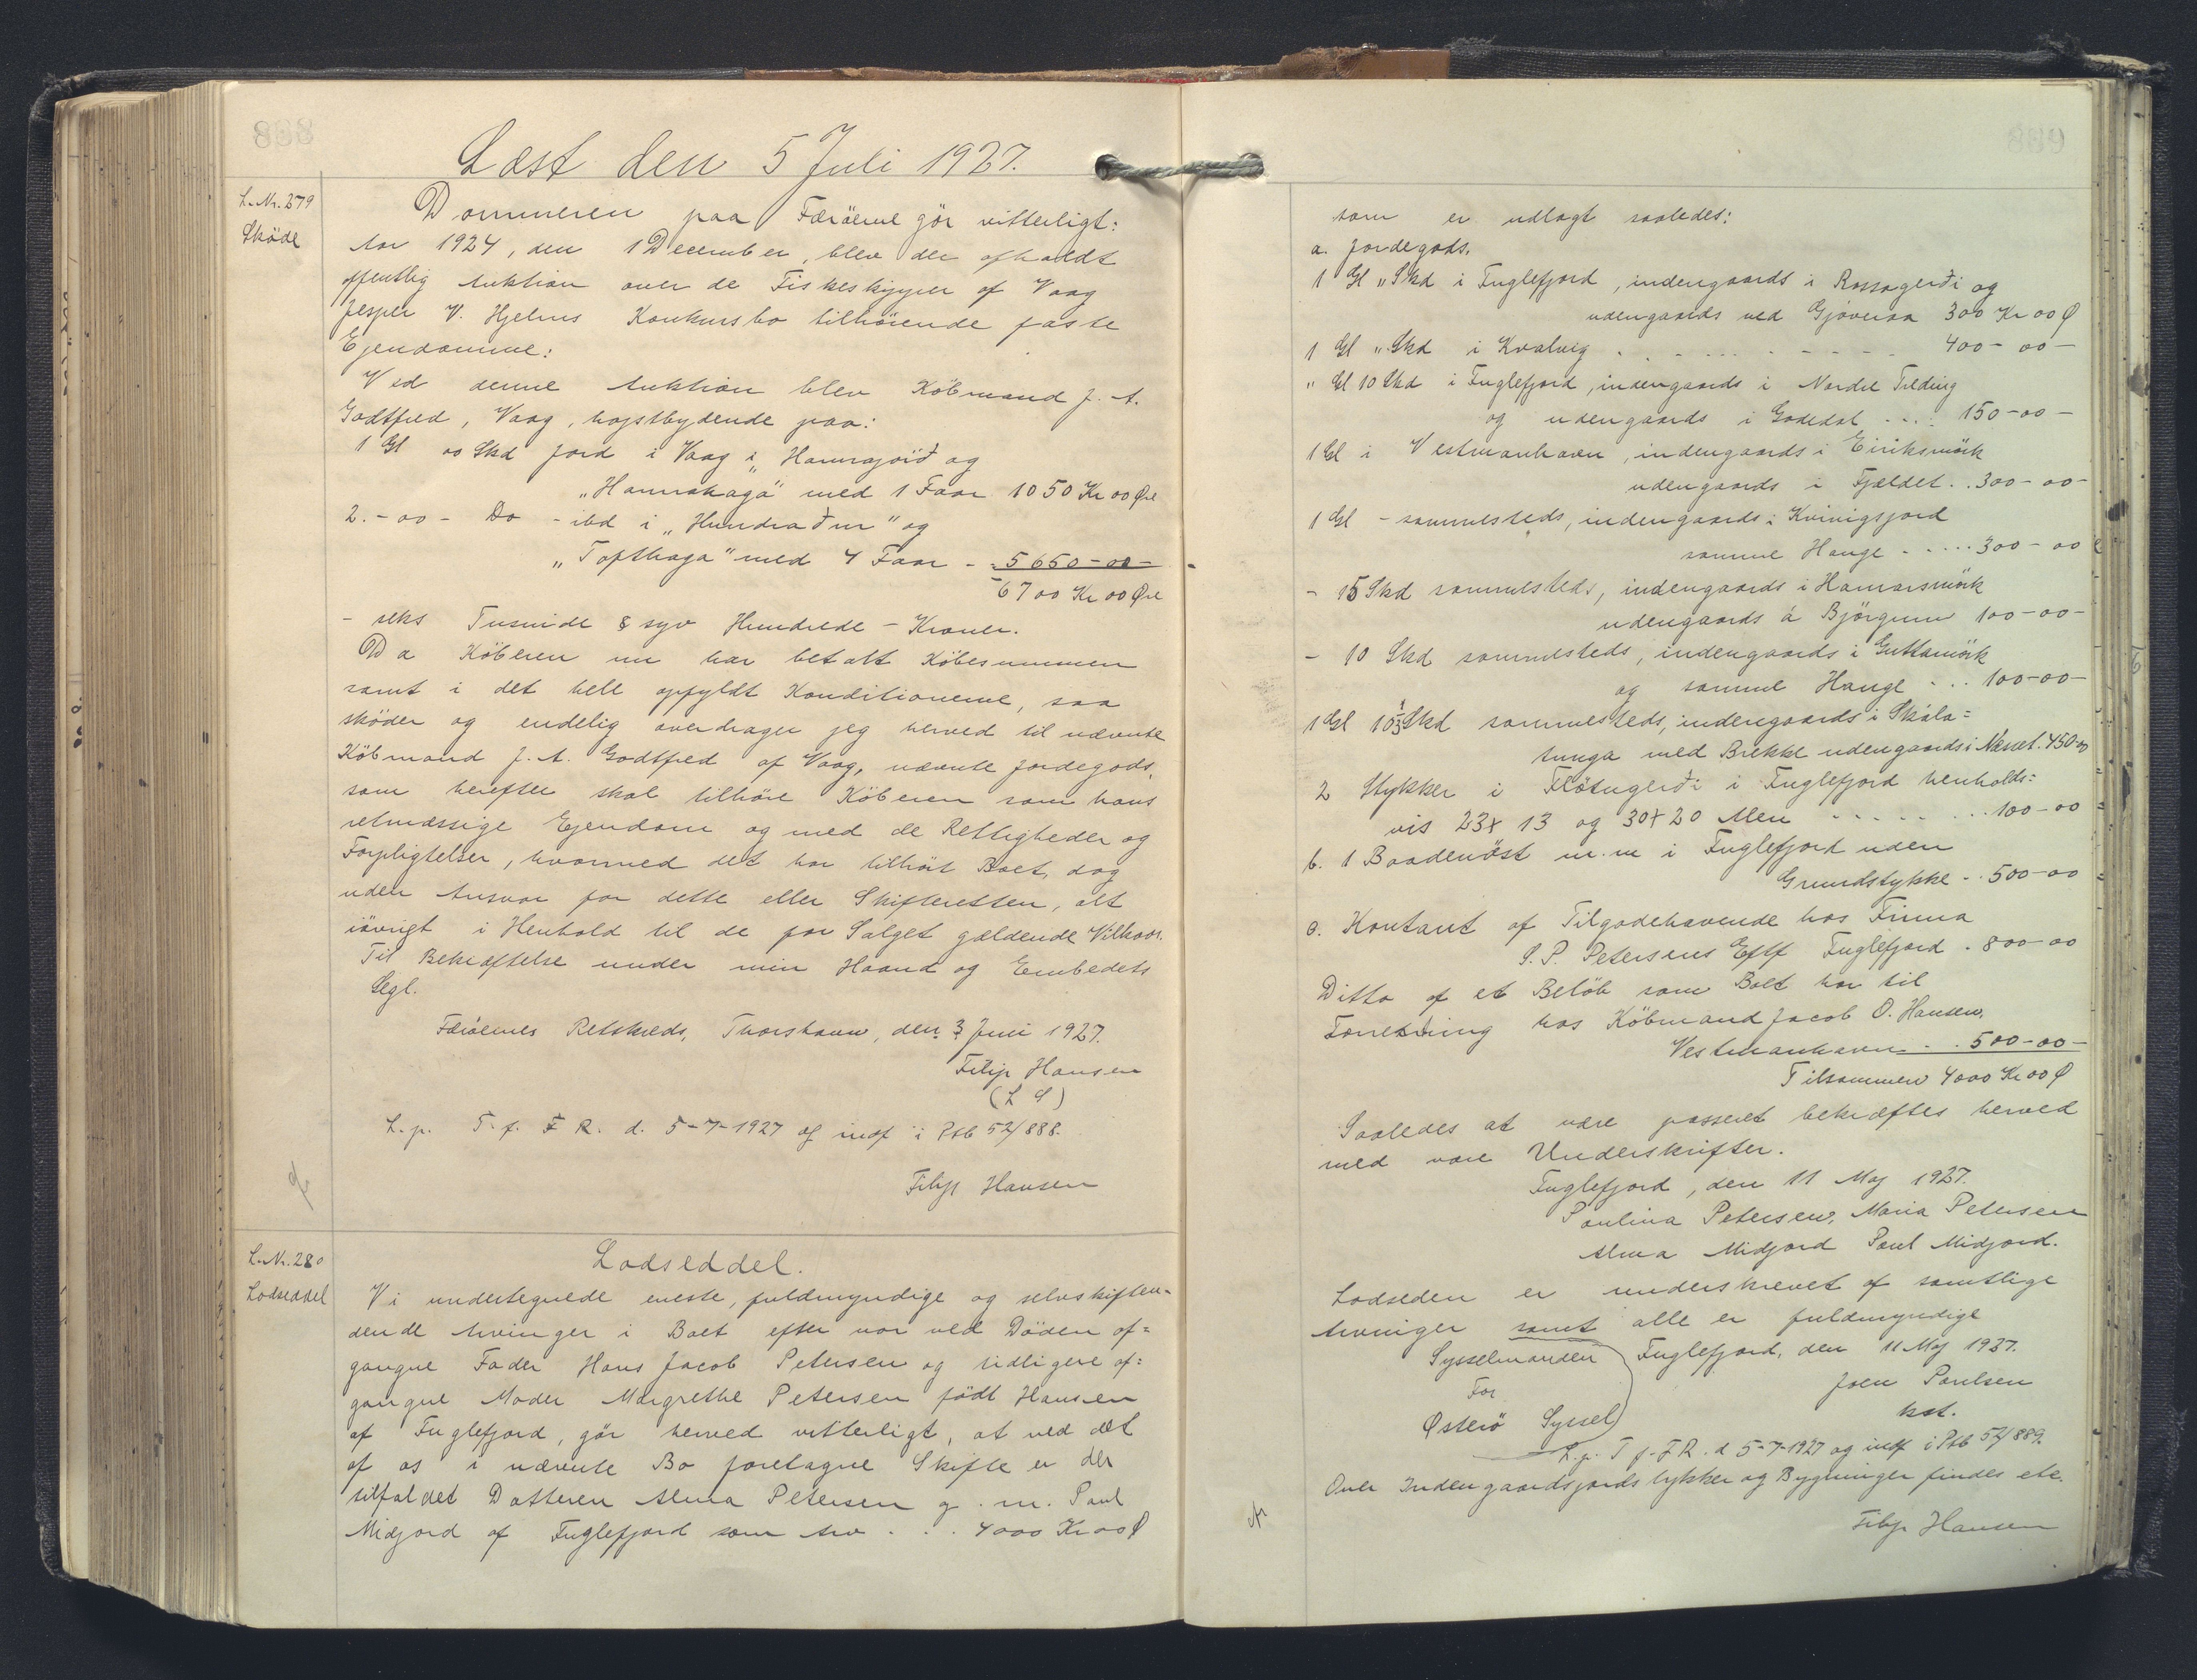 Læst den 5 Juli 1927.
L.Nr. 279
Sköde
Dommeren paa Færöerne gör vitterligt:
Aar 1924, den 1 December, blev der afholdt
offentlig Auktion over de Fiskeskipper af Vaag
Jesper V. Hjelms Konkursbo tilhörende faste
Ejendomme:
Ved denne Auktion blev Köbmand J. A.
Godtfred, Vaag, højstbydende paa:
1 Gl 00 Skd Jord i Vaag i „Hamrajörð og
„Hamrahaga" med 1 Faar 1050 Kr 00 Øre
2. - 00 - Do - ibd i „Hundraður" og
„Tofthaga" med 4 Faar - 5650 - 00 -
6700 Kr 00 Øre
- seks Tusinde & syv Hundrede - Kroner.
Da Köberen nu har betalt Köbesummen
samt i det hele opfyldt Konditionerne, saa
sköder og endelig overdrager jeg herved til nævnte
Köbmand J. A. Godtfred af Vaag, nævnte Jordegods,
som herefter skal tilhöre Köberen som hans
retmæssige Ejendom og med de Rettigheder og
Forpligtelser, hvormed det har tilhört Boet, dog
uden Ansvar for dette eller Skifteretten, alt
iövrigt i Henhold til de for Salget gældende Vilkaar.
Til Bekræftelse under min Haand og Embedets
Segl.
Færöernes Retskreds, Thorshavn, den 3 Juni 1927.
Filip Hansen
(L S)
L. p. T. f. F R. d. 5-7-1927 og indf i Ptb 52/888.
Filip Hansen
L.Nr. 280
Lodseddel
Lodseddel.
Vi undertegnede eneste, fuldmyndige og selvskiften-
dende Arvinger i Boet efter vor ved Döden af=
gangne Fader Hans Jacob Petersen og tidligere af=
gangne Moder Margrethe Petersen født Hansen
af Fuglefjord, gör herved vitterligt, at ved det
af os i nævnte Bo foretagne Skifte er der
tilfaldet Datteren Alma Petersen g. m. Paul
Midjord af Fuglefjord som Arv . . . 4000 Kr 00 Ø
som er udlagt saaledes:
a. Jordegods.
1 Gl „ Skd i Fuglefjord, indengaards i Rossagerði og
udengaards ved Gjöveraa 300 Kr 00 Ø
1 Gl „ Skd i Kvalvig . . . . . . . . 400 - 00 -
„ Gl 10 Skd i Fuglefjord, indengaards i Nordre Trding
og udengaards i Godedal . . . . 150 - 00 -
1 Gl i Vestmanhavn, indengaards i Eiriksmörk
udengaards i Fjældet . . 300 - 00 -
1 Gl - sammesteds, indengaards i Kvivigsjord
samme Hauge . . . . . 300 - 00
- 15 Skd sammesteds, indengaards i Hamarsmörk
udengaards á Björgum 100 - 00 -
- 10 Skd sammesteds, indengaards i Guttamörk
og samme Hauge . . . 100 - 00 -
1 Gl 10 1/3 Skd sammesteds, indengaards i Skála=
tunga med Brekke udengaards i Næsset. 450 - 00
2 Stykker i Flötugerði i Fuglefjord henholds=
vis 23 x 13 og 30 x 20 Alen . . . . . . . 100 - 00
b. 1 Baadenöst m. m i Fuglefjord uden
Grundstykke . . 500 - 00
c. Kontant af Tilgodehavende hos Firma
S. P. Petersens Eftf Fuglefjord . 800 - 00
Ditto af et Belöb som Boet har til
Forretning hos Köbmand Jacob O. Hansen,
Vestmanhavn . . 500 - 00 -
Tilsammen 4000 Kr 00 Ø
Saaledes at være passeret bekræftes herved
med vore Underskrifter.
Fuglefjord, den 11 Maj 1927.
Paulina Petersen, Maria Petersen
Alma Midjord Paul Midjord.
Lodseden er underskrevet af samtlige
Arvinger samt alle er fuldmyndige
Sysselmanden Fuglefjord, den 11 Maj 1927.
For Joen Poulsen
Østerö Syssel kst.
L. p. T f. F R. d 5-7-1927 og indf i Ptb 52/889.
Over Indengaardsjordstykker og Bygninger findes etc.
Filip Hansen